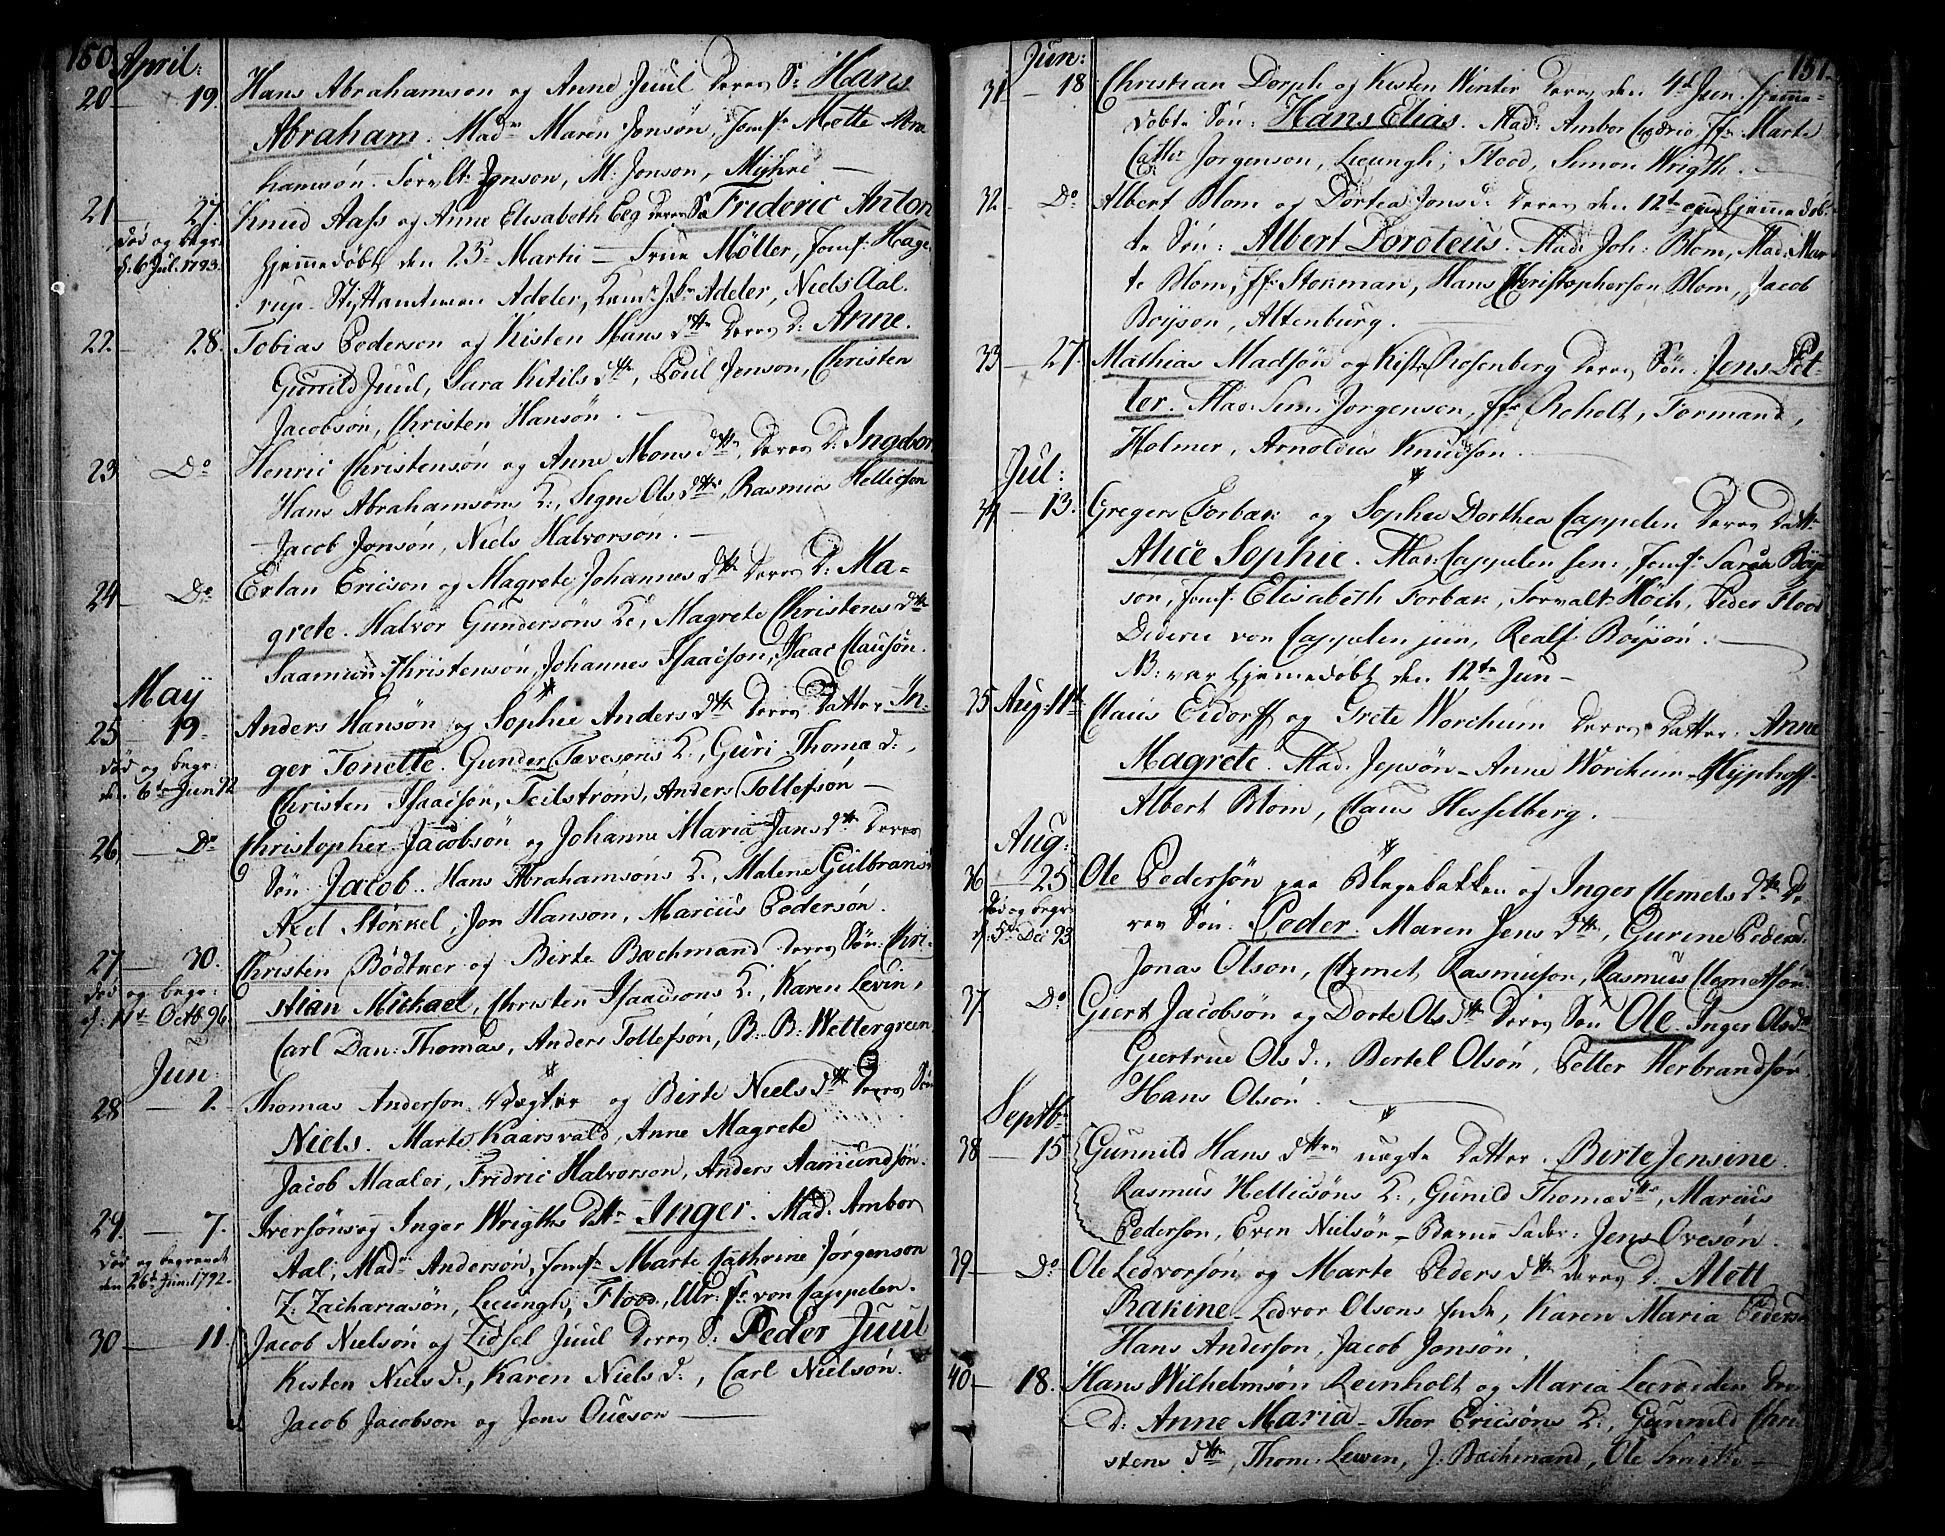 150.
April:
20 — 19. Hans Abrahamson og Anne Juul deres S: Hans
Abraham. Mad: Maren Jonsøn, Jomf: Mette Abra
hamsøn. Forvlt: Jonson, M: Jonson, Myhre —
21 — 27. Knud Aass og Anne Elisabeth Eeg deres S: Frideric Anton
død og begr:
d: 6 Jul: 1793.
hjemmedøbt den 23 Martii — Frue Möller, Jomf: Hage
rup. Stiftamtman Adeler, Adeler, Niels Aal.
22 — 28. Tobias Pederson og Kisten Hans dtr deres D: Anne.
Gunild Juul, Sara Kitils dtr, Poul Jenson, Christen
Jacobsøn, Christen Hansøn.
23 Do Henric Christensøn og Anne Mons dtr, deres D: Ingebor
Hans Abrahamsøns K:, Segne Ols dtr, Rasmus Hellicson
Jacob Jonsøn, Niels Halvorson.
24 — Do Erlan Ericson og Magrete Johannes dtr deres D: Ma-
grete. Halvor Gundersøns K:, Magrete Christens dtr
Saamun Christensøn, Johannes Isaacson, Isaac Clausøn.
May
25 — 19. Anders Hansøn og Sophie Anders dtr deres Datter In-
død og begr:
den 6te Jun 92
ger Tonette. Gunder Tævesons K:, Guri Thomæ d:,
Christen Isaacsøn, Feilstrøm, Anders Tollefsøn —
26 — Do Christopher Jacobsøn og Johanne Maria Jans dtr deres
Søn Jacob. Hans Abrahamsøns K:, Malene Gulbrans
Axel Støkkel, Jon Hanson, Marcus Pedersøn.
27 — 30. Christen Bødtker og Birte Bachmand deres Søn: Chri-
død og begr:
d: 11te Octb: 96.
stian Michael, Christen Isaacsons K:, Karen Levin,
Carl Dan: Thomas, Anders Tollefsøn, B: B: Wettergreen
Jun:
28 — 2. Thomas Anderson Vægter og Birte Niels dtr deres Søn
Niels. Marte Kaarsvald, Anne Magrete
Jacob Maaler, Fridric Halvorson, Anders Aamundsøn.
29. — 7. Iversøns og Inger Wrigths dtr Inger. Mad: Ambor
død og begravet
den 26de Jun: 1792.
Aal, Mad: Andersøn, Jomf: Marte Cathrine Jørgenson
Z: Zachariasøn, Leungh, Flood, Ulr: Fr: von Cappelen.
30 — 11. Jacob Nielsøn og Zidsel Juul deres S: Peder Juul
Kisten Niels d:, Karen Niels d:, Carl Nielsøn.
Jacob Jacobson og Jens Oueson —
151.
Jun:
31 — 18 Christian Dorph og Kisten Winter deres den 4de Jun. hjemme-
døbte Søn: Hans Elias. Mad: Ambor Jfr: Marte
Cathr: Jorgenson, Leungh, Flood, Simon Wrigth.
32 — Do Albert Blom og Dortea Jons d: deres den 12te hjemmedøb-
te Søn: Albert Doroteus. Mad: Joh: Blom, Mad: Mar
te Blom, Jfr: Stenman, Hans Christopherson Blom, Jacob
Boyson, Altenburg.
33 — 27. Mathias Madsøn og Kist: Rosenberg deres Søn. Jens Pet-
ter. Mad: Sem: Jorgenson, Jfr: Roholt, Formand,
Holmer, Arnoldus Knudson.
Jul:
34 — 13. Gregers Forbak og Sophie Dorthea Cappelen deres Dattr
Alice Sophie. Mad: Cappelen sen: Jomf: Sara Boy
son, Jomf: Elisabeth Forbak, Forvalt: Høch, Peder Flood
Dideric von Cappelen jun, Realf Böyson.
B: var hjemmedøbt den 12te Jun —
35 Aug: 11te Claus Eidorff og Grete Worchum deres Datter. Anne
Magrete. Mad: Jepsøn — Anne Worchum — Nyphoff-
Albert Blom, Claus Hesselberg.
Aug:
36 — 25 Ole Pedersøn paa Blegebakken og Inger Clemets dtr de
død og begr:
d: 5te Dec 93.
res Søn: Peder. Maren Jens dtr, Gurine Peders d:
Jonas Olson, Clemet Rasmuson, Rasmus Clemetsøn.
37. Do Giert Jacobsøn og Dorte Ols dtr deres Søn Ole. Inger Ols d:
Giertrue Ols d:, Bertel Olsøn, Petter Herbrandsøn.
Hans Olsøn.
Septbr:
38 — 15 Gunnild Hans dtrs uægte Datter. Birte Jensine.
Rasmus Hellicsøns K:, Gunild Thomæ dtr, Marcus
Pederson, Even Nielsøn — Barne Fader: Jens Ovesøn.
39 — Do Ole Ledvorsøn og Marte Peders dtr deres D: Alett
Rakine — Ledvor Olsons Enke, Karen Maria Peders
Hans Anderson, Jacob Jonsøn.
40 — 18. Hans Wilhelmsøn Reinholt og Maria
D: Anne Maria — Thor Ericsøns K:, Gunnild Chri
stens dtr, Thom: Lewen, J: Bachmand, Ole Smith —